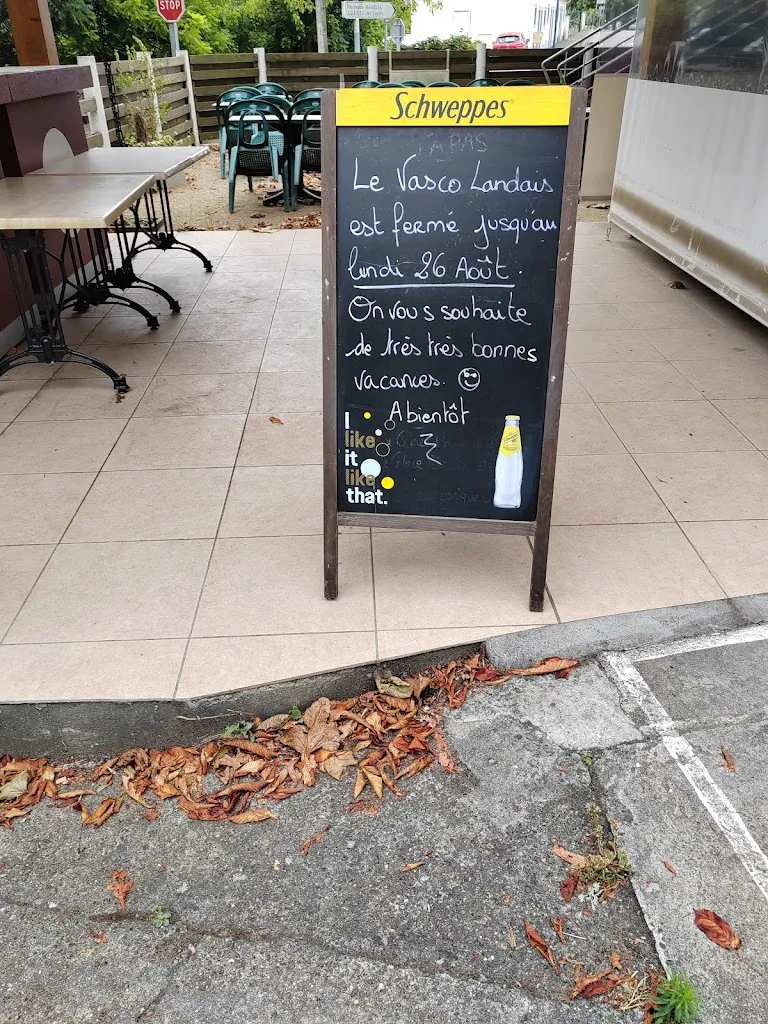 STOP
Schweppes
TAPAS
Le Vasco Landais
est fermé jusqu'au
lundi 26 Août.
On vous souhaite
de très très bonnes
vacances.
A bientôt
I
like
it
like
that.